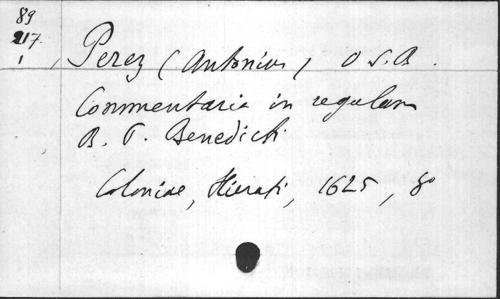 89
217
1
Perez (Antonius) O.S.B.
Commentaria in regulam
B. P. Benedicti
Coloniae, Hierati, 1625, 8°